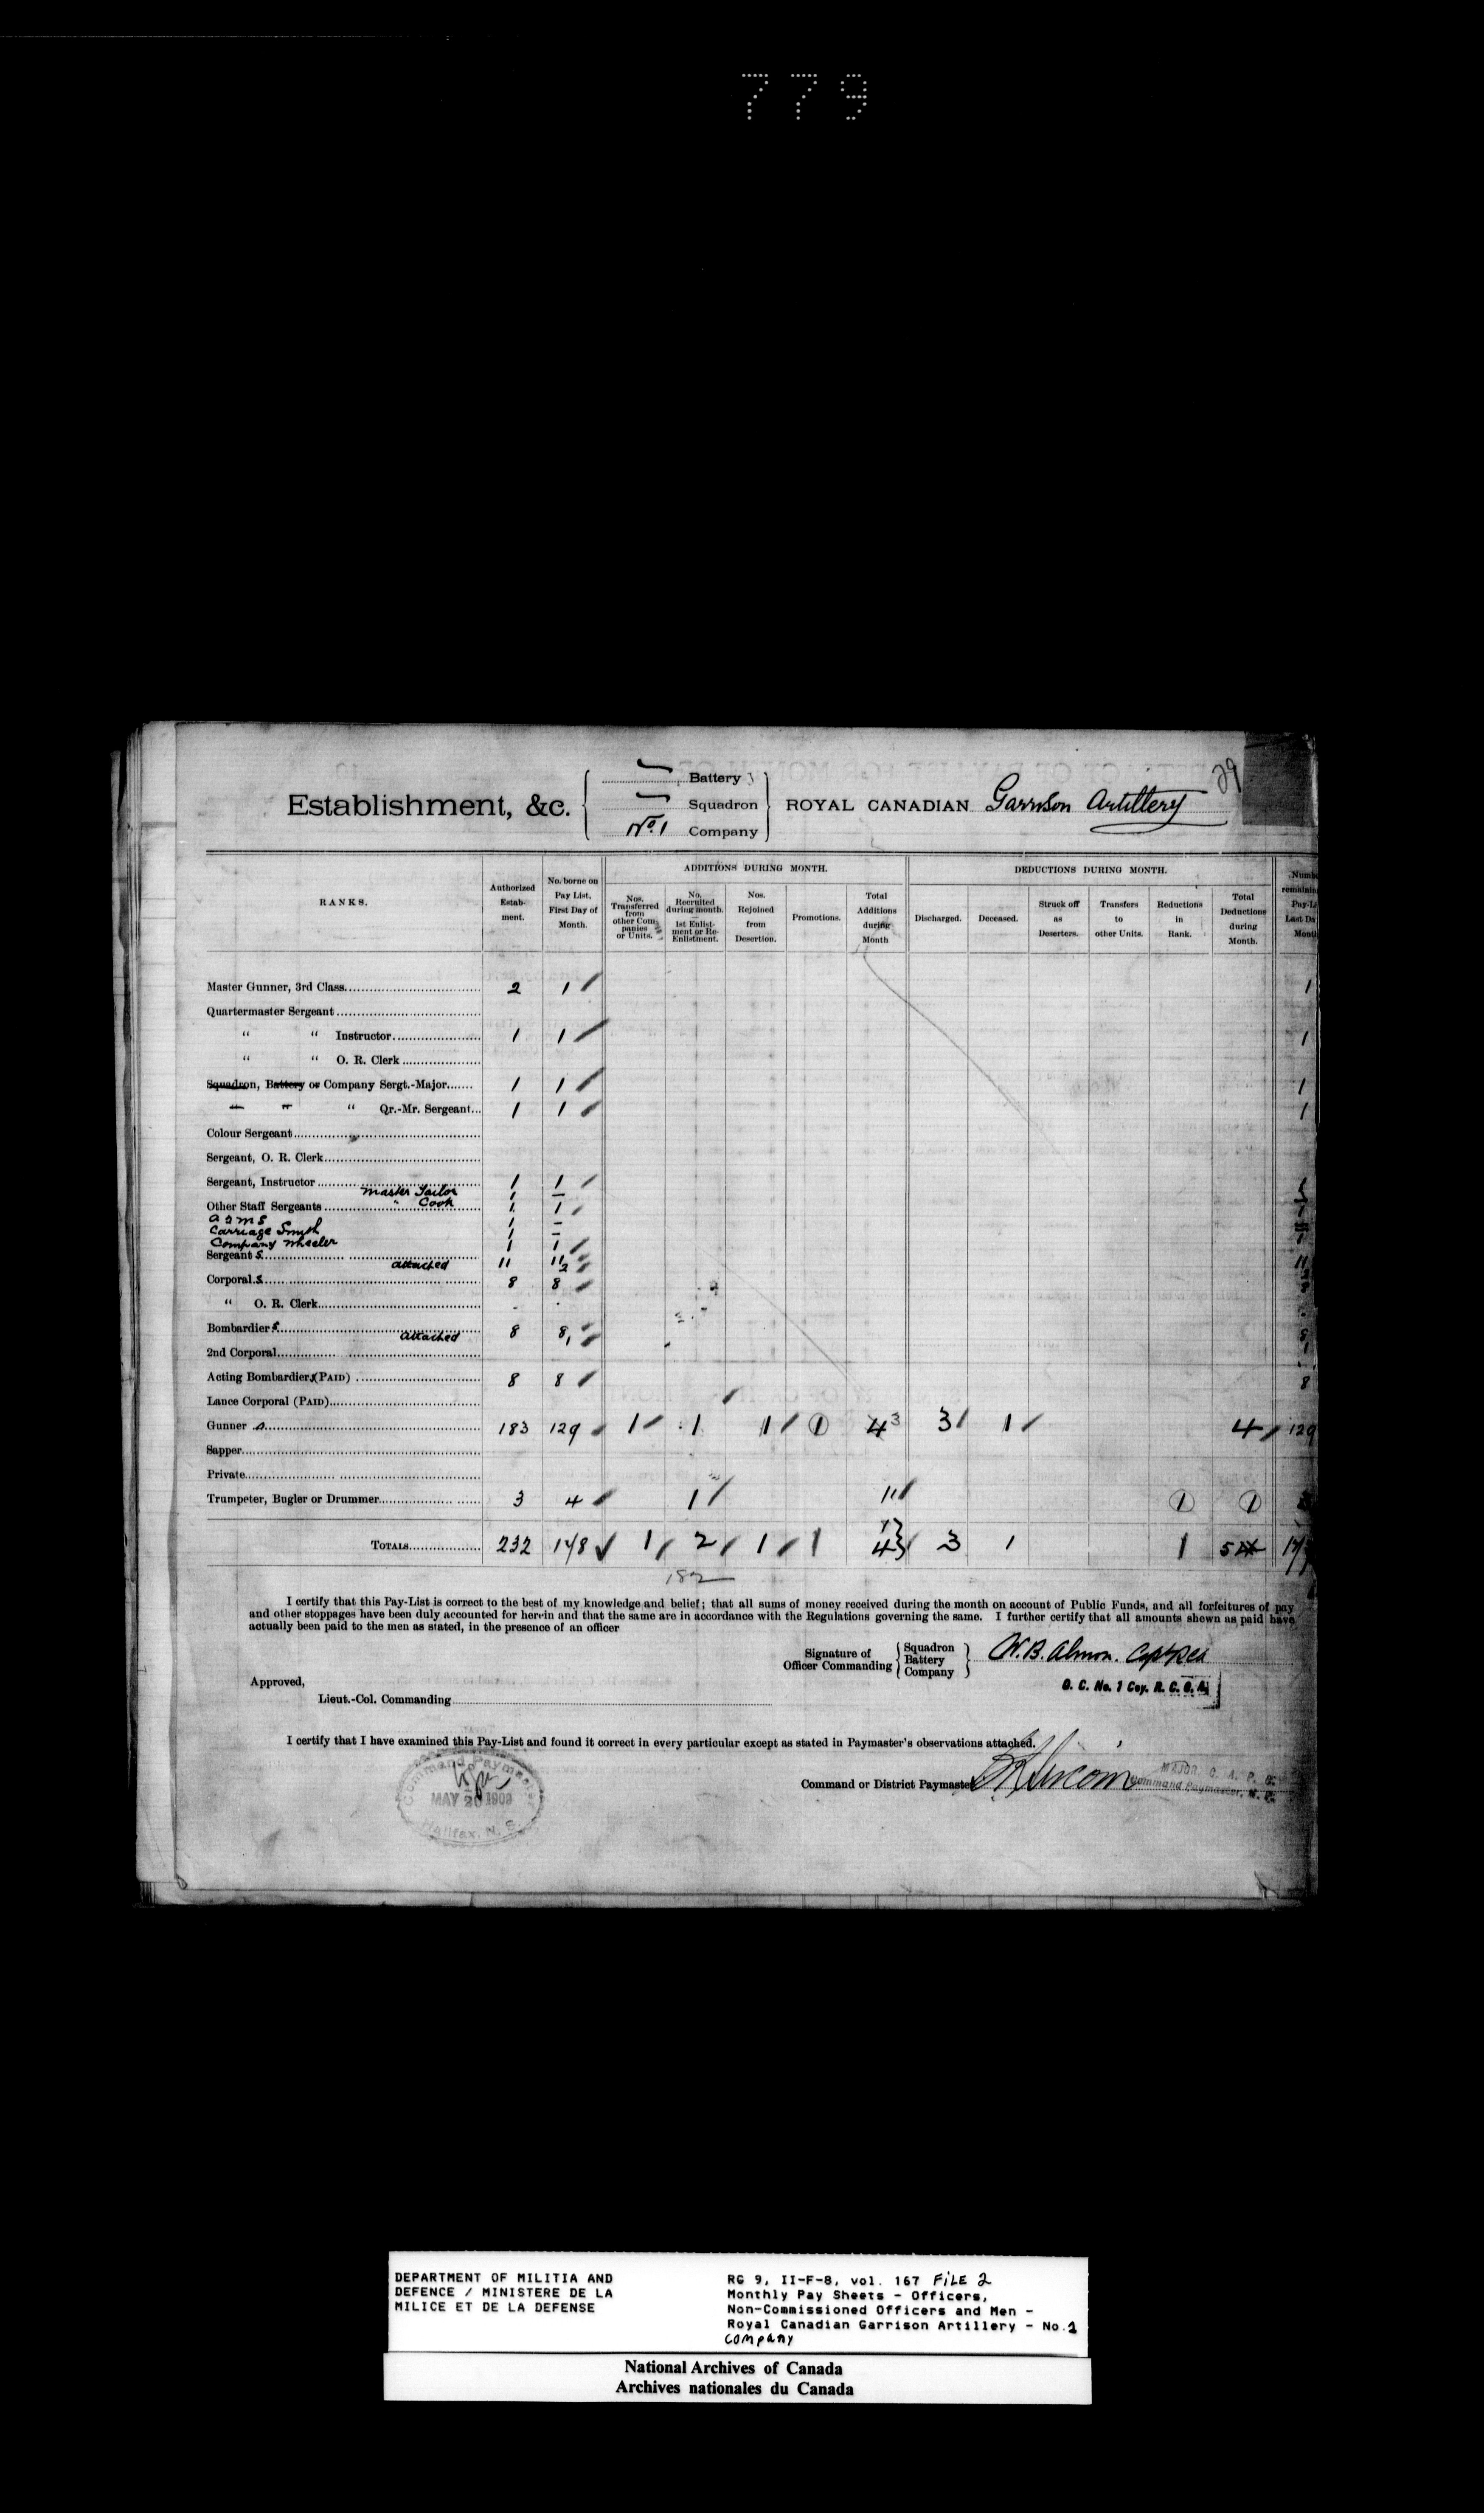 779
29
Battery
Establishment, &c. Squadron ROYAL CANADIAN Garrison Artillery
No. 1 Company
RANKS. Authorized Establishment. No. borne on Pay List, First Day of Month. ADDITIONS DURING MONTH. DEDUCTIONS DURING MONTH.
Nos. Transferred from other Companies or Units. No. Recruited during month. 1st Enlistment or Re-Enlistment. Nos. Rejoined from Desertion. Promotions. Total Additions during Month Discharged. Deceased. Struck off as Deserters. Transfers to other Units. Reductions in Rank. Total Deductions during Month.
Master Gunner, 3rd Class 2 1 1
Quartermaster Sergeant
" " Instructor 1 1 1
" " O. R. Clerk
Squadron, Battery or Company Sergt.-Major 1 1 1
" " " Qr.-Mr. Sergeant 1 1 1
Colour Sergeant
Sergeant, O. R. Clerk
Sergeant, Instructor 1 1
Master Tailor 1 –
Other Staff Sergeants " Cook 1 1
A S M S 1 –
Carriage Smith 1 –
Company Wheeler 1 1
Sergeants 11 11
attached 2
Corporals 8 8
" O. R. Clerk
Bombardiers 8 8
attached 1
2nd Corporal
Acting Bombardiers (PAID) 8 8 8
Lance Corporal (PAID)
Gunners 183 129 1 1 1 1 4 3 3 1 4 129
Sapper
Private
Trumpeter, Bugler or Drummer 3 4 1 1 1 1
TOTALS 232 148 1 2 1 1 4 3 1 1 5
182
I certify that this Pay-List is correct to the best of my knowledge and belief; that all sums of money received during the month on account of Public Funds, and all forfeitures of pay
and other stoppages have been duly accounted for herein and that the same are in accordance with the Regulations governing the same. I further certify that all amounts shewn as paid have
actually been paid to the men as stated, in the presence of an officer
Signature of Officer Commanding Squadron Battery Company W. B. Almon. Capt RCA
O. C. No. 1 Coy. R. C. G. A.
Approved,
Lieut.-Col. Commanding
I certify that I have examined this Pay-List and found it correct in every particular except as stated in Paymaster's observations attached.
Command or District Paymaster
MAJOR, C. A. P. C.
Command Paymaster, M. P.
Command Paymaster
MAY 20 1909
Halifax, N. S.
DEPARTMENT OF MILITIA AND
DEFENCE / MINISTERE DE LA
MILICE ET DE LA DEFENSE
RG 9, II-F-8, vol. 167 FILE 2
Monthly Pay Sheets - Officers,
Non-Commissioned Officers and Men -
Royal Canadian Garrison Artillery - No.1
company
National Archives of Canada
Archives nationales du Canada